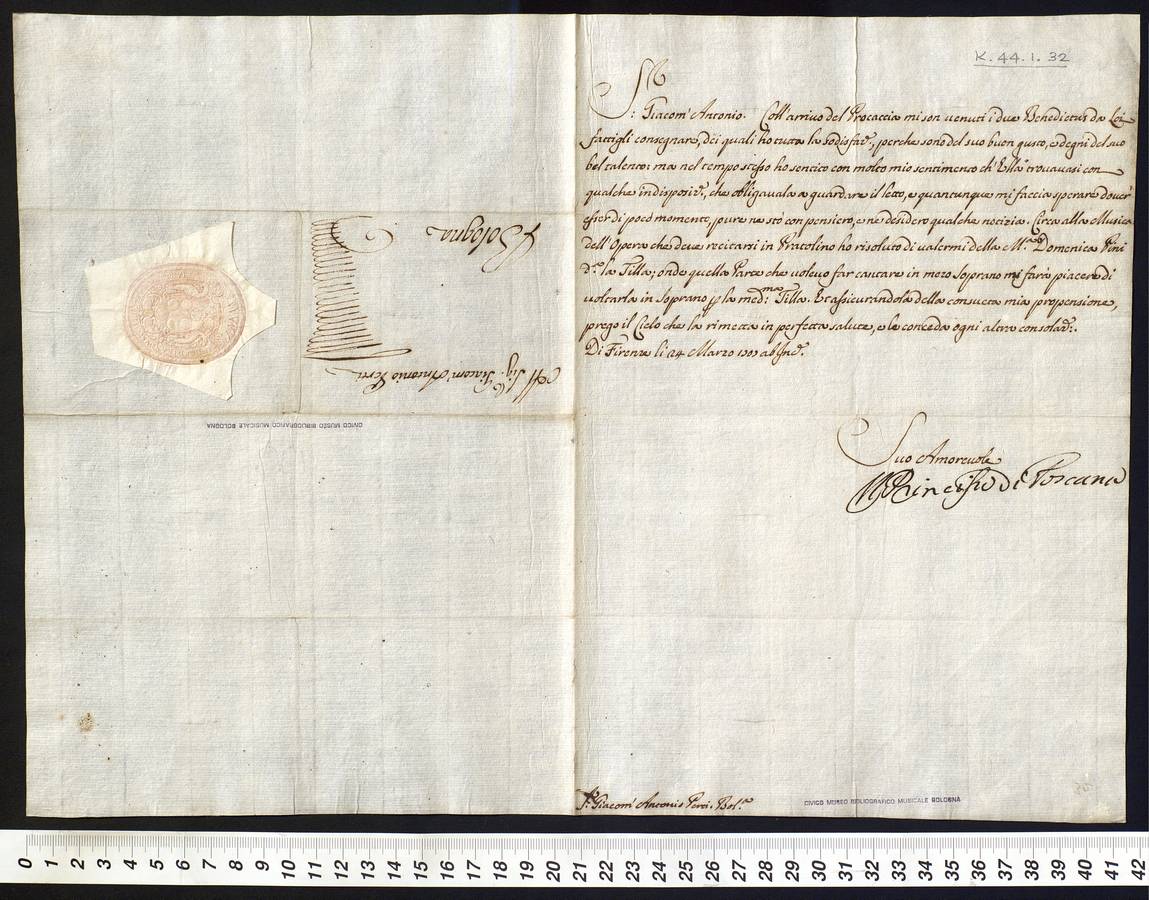 K.44.1.32
S.r
S: Giacom' Antonio. Coll'arrivo del Procaccia mi son venuti i due Benedictus da Lei
fattigli consegnare, dei quali ho tutta la sodisfaz.e, perche sono del suo buon gusto, e degni del suo
bel talento: ma nel tempo stesso ho sentito con molto mio sentimento ch'Ella trovavasi con
qualche indisposiz.e, che obligavala a guardare il letto, e quantunque mi faccia sperare dover'
esser di poco momento, pure ne stò con pensiero, e ne desidero qualche notizia. Circa alla Musica
dell'Opera che deve recitarsi in Pratolino ho risoluto di valermi della M.a Domenica Pini
d.a la Tilla; onde quella Parte che volevo far cantare in mezo Soprano mi farà piacere di
voltarla in Soprano p la med:ma Tilla. Et assicurandola della consueta mia propensione,
prego il Cielo che la rimetta in perfetta salute, e le conceda ogni altra consolaz:.
Di Firenze li 24 Marzo 1707 ab Inc.e
Suo Amorevole
Il Principe di Toscana
S.r Giacom' Antonio Perti. Bol.a
CIVICO MUSEO BIBLIOGRAFICO MUSICALE BOLOGNA
All Sig.r Giacom' Antonio Perti
Bologna
CIVICO MUSEO BIBLIOGRAFICO MUSICALE BOLOGNA
0 1 2 3 4 5 6 7 8 9 10 11 12 13 14 15 16 17 18 19 20 21 22 23 24 25 26 27 28 29 30 31 32 33 34 35 36 37 38 39 40 41 42